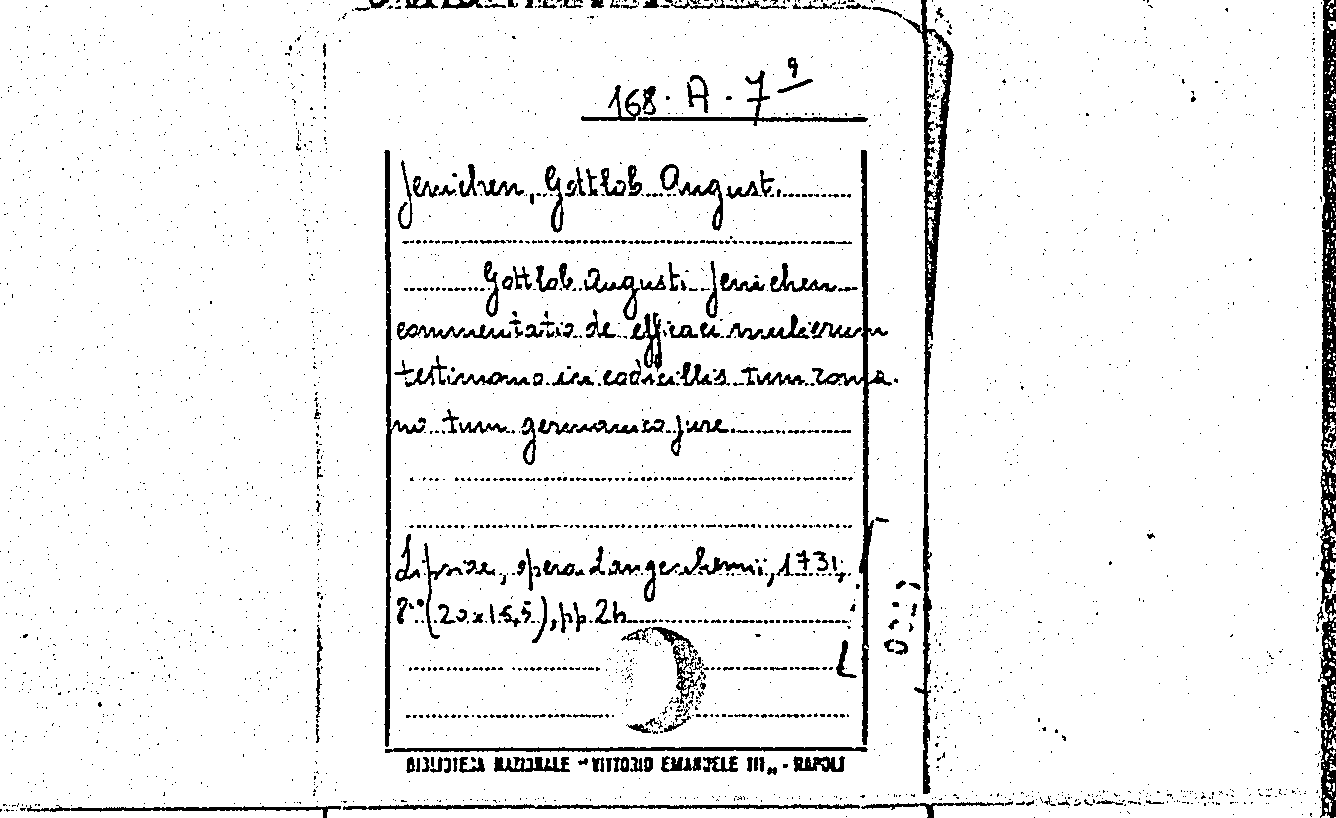 168. A. 7 9
Jenichen, Gottlob August.
Gottlob Augusti Jenichen
commentatio de efficaci mulierum
testimonio in codicillis tum roma-
no tum germanico jure
Lipsiae, opera Langenhemii, 1731,
8° (20x15,5), pp. 24
BIBLIOTECA NAZIONALE "VITTORIO EMANUELE III„ - NAPOLI